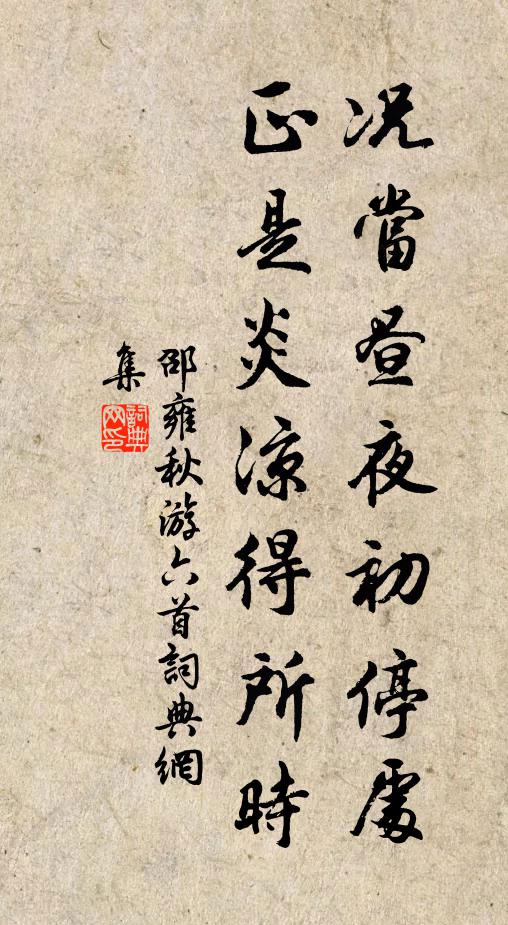 况當昼夜初停處
正是炎涼得所時
邵雍秋游六首詞典網
集
詞典
网印